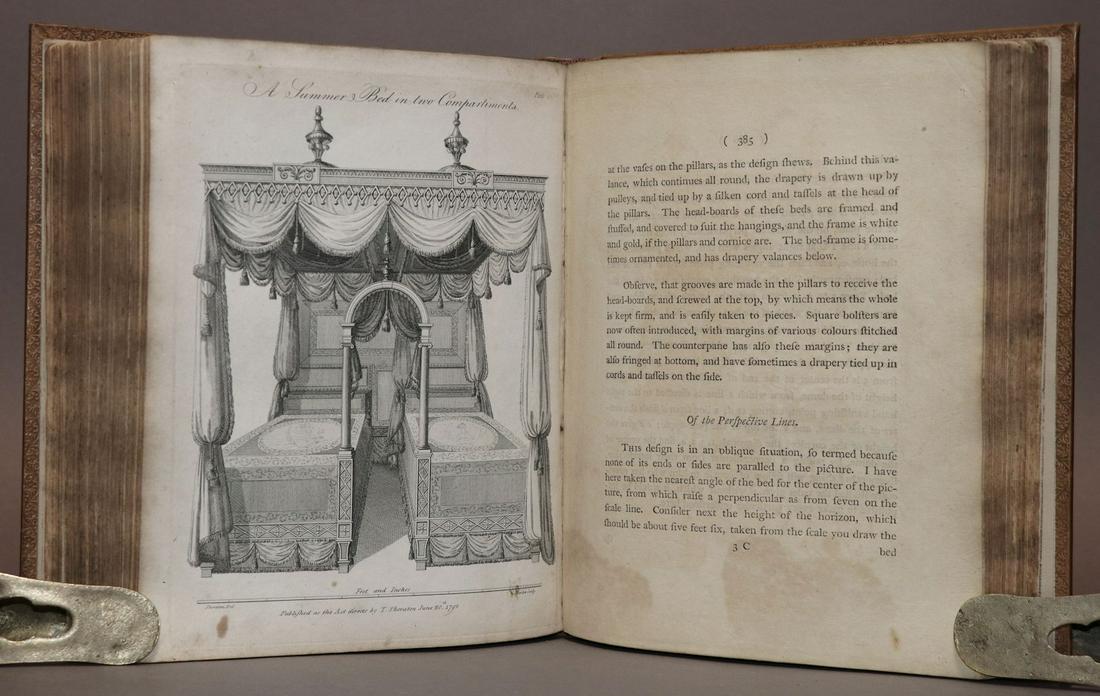 A Summer Bed in two Compartments.
Feet and Inches
Published as the Act directs by T. Sheraton June 20th 1792
( 385 )
at the vaſes on the pillars, as the deſign ſhews. Behind this va-
lance, which continues all round, the drapery is drawn up by
pulleys, and tied up by a ſilken cord and taſſels at the head of
the pillars. The head-boards of theſe beds are framed and
ſtuffed, and covered to ſuit the hangings, and the frame is white
and gold, if the pillars and cornice are. The bed-frame is ſome-
times ornamented, and has drapery valances below.
Obſerve, that grooves are made in the pillars to receive the
head-boards, and ſcrewed at the top, by which means the whole
is kept firm, and is eaſily taken to pieces. Square bolſters are
now often introduced, with margins of various colours ſtitched
all round. The counterpane has alſo theſe margins; they are
alſo fringed at bottom, and have ſometimes a drapery tied up in
cords and taſſels on the ſide.
Of the Perſpective Lines.
THIS deſign is in an oblique ſituation, ſo termed becauſe
none of its ends or ſides are paralled to the picture. I have
here taken the neareſt angle of the bed for the center of the pic-
ture, from which raiſe a perpendicular as from ſeven on the
ſcale line. Conſider next the height of the horizon, which
ſhould be about five feet ſix, taken from the ſcale you draw the
3 C
bed